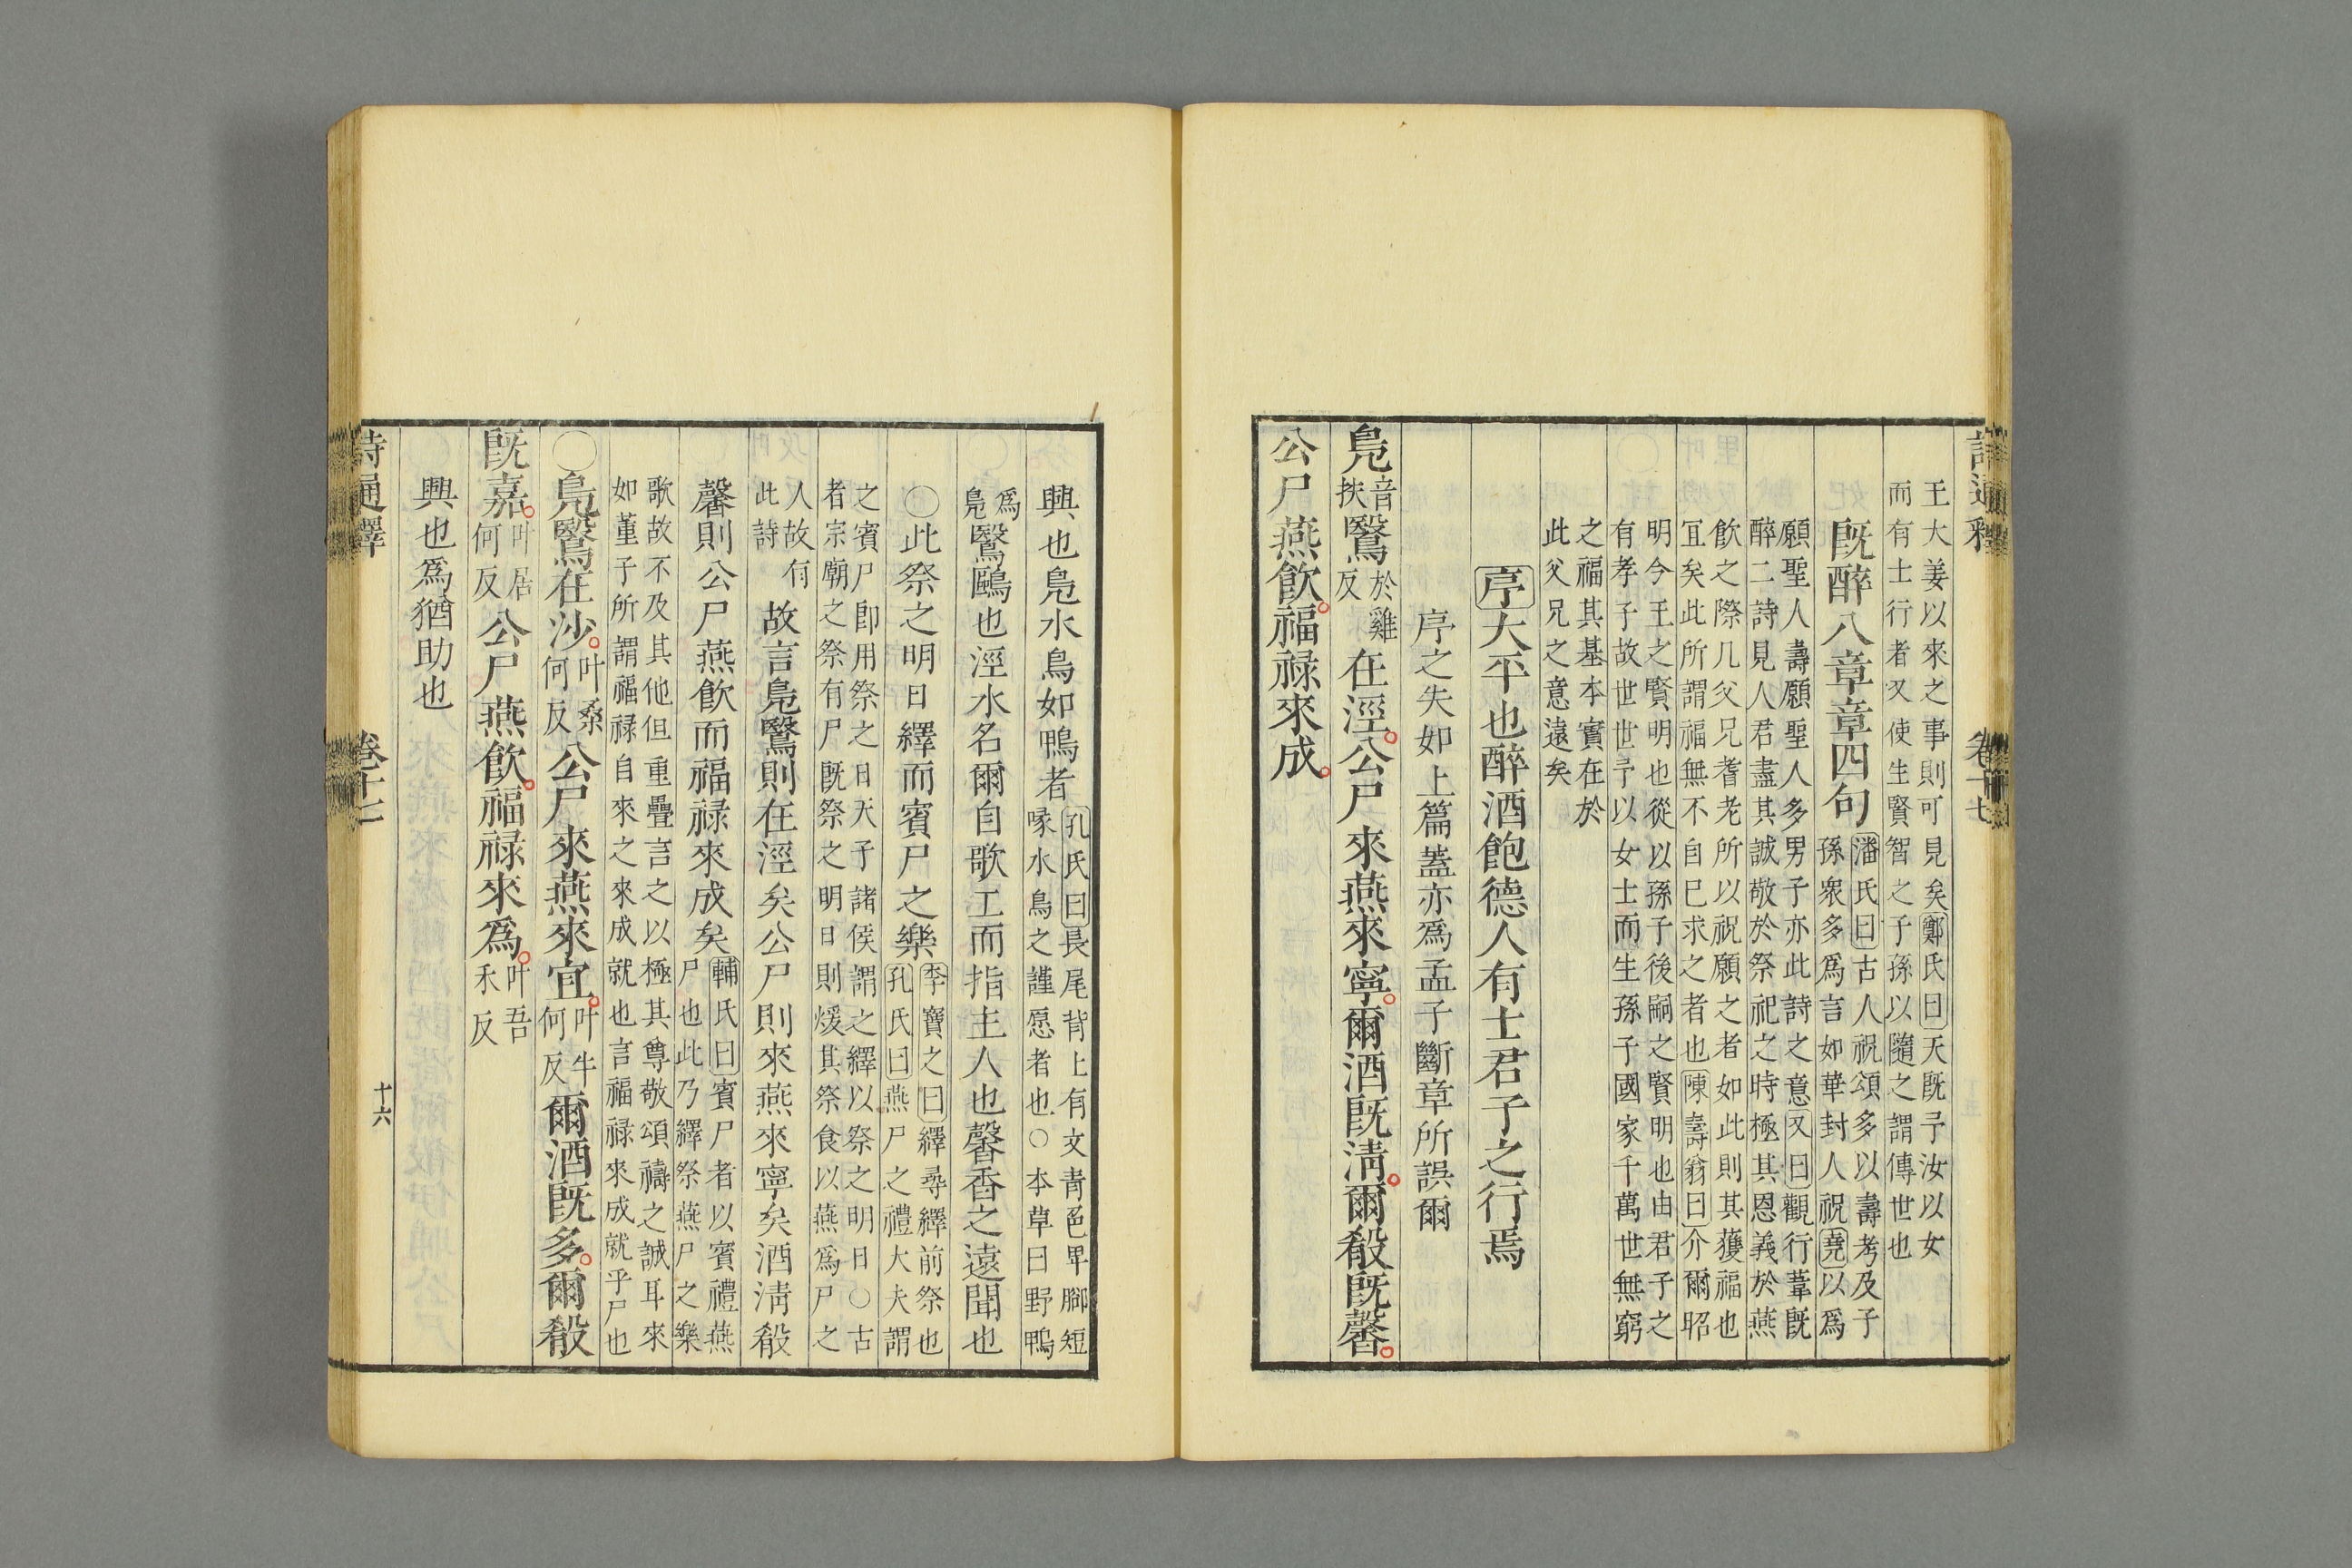 詩通釋 卷十七
王大姜以來之事則可見矣鄭氏曰天旣予汝以女
而有士行者又使生賢智之子孫以隨之謂傳世也
旣醉八章章四句
潘氏曰古人祝頌多以壽考及子
孫衆多爲言如華封人祝堯以爲
願聖人壽願聖人多男子亦此詩之意又曰觀行葦旣
醉二詩見人君盡其誠敬於祭祀之時極其恩義於燕
飮之際凡父兄耆老所以祝願之者如此則其獲福也
宜矣此所謂福無不自已求之者也陳壽翁曰介爾昭
明今王之賢明也從以孫子後嗣之賢明也由君子之
有孝子故世世予以女士而生孫子國家千萬世無窮
之福其基本實在於
此父兄之意遠矣
序大平也醉酒飽德人有士君子之行焉
序之失如上篇蓋亦爲孟子斷章所誤爾
鳧音扶鷖於雞反在涇公尸來燕來寧爾酒旣淸爾殽旣馨
公尸燕飮福祿來成
興也鳧水鳥如鴨者孔氏曰長尾背上有文靑色卑腳短
喙水鳥之謹愿者也○本草曰野鴨
爲鳧鷖鷗也涇水名爾自歌工而指主人也馨香之遠聞也
○此祭之明日繹而賓尸之樂李寶之曰繹尋繹前祭也
孔氏曰燕尸之禮大夫謂
之賓尸卽用祭之日天子諸侯謂之繹以祭之明日○古
者宗廟之祭有尸旣祭之明日則煖其祭食以燕爲尸之
人故有此詩故言鳧鷖則在涇矣公尸則來燕來寧矣酒淸殽
馨則公尸燕飮而福祿來成矣輔氏曰賓尸者以賓禮燕
尸也此乃繹祭燕尸之樂
歌故不及其他但重疊言之以極其尊敬頌禱之誠耳來
如董子所謂福祿自來之來成就也言福祿來成就乎尸也
○鳧鷖在沙叶桑何反公尸來燕來宜叶牛何反爾酒旣多爾殽
旣嘉叶居何反公尸燕飮福祿來爲叶吾禾反
興也爲猶助也
詩通釋 卷十七 十六